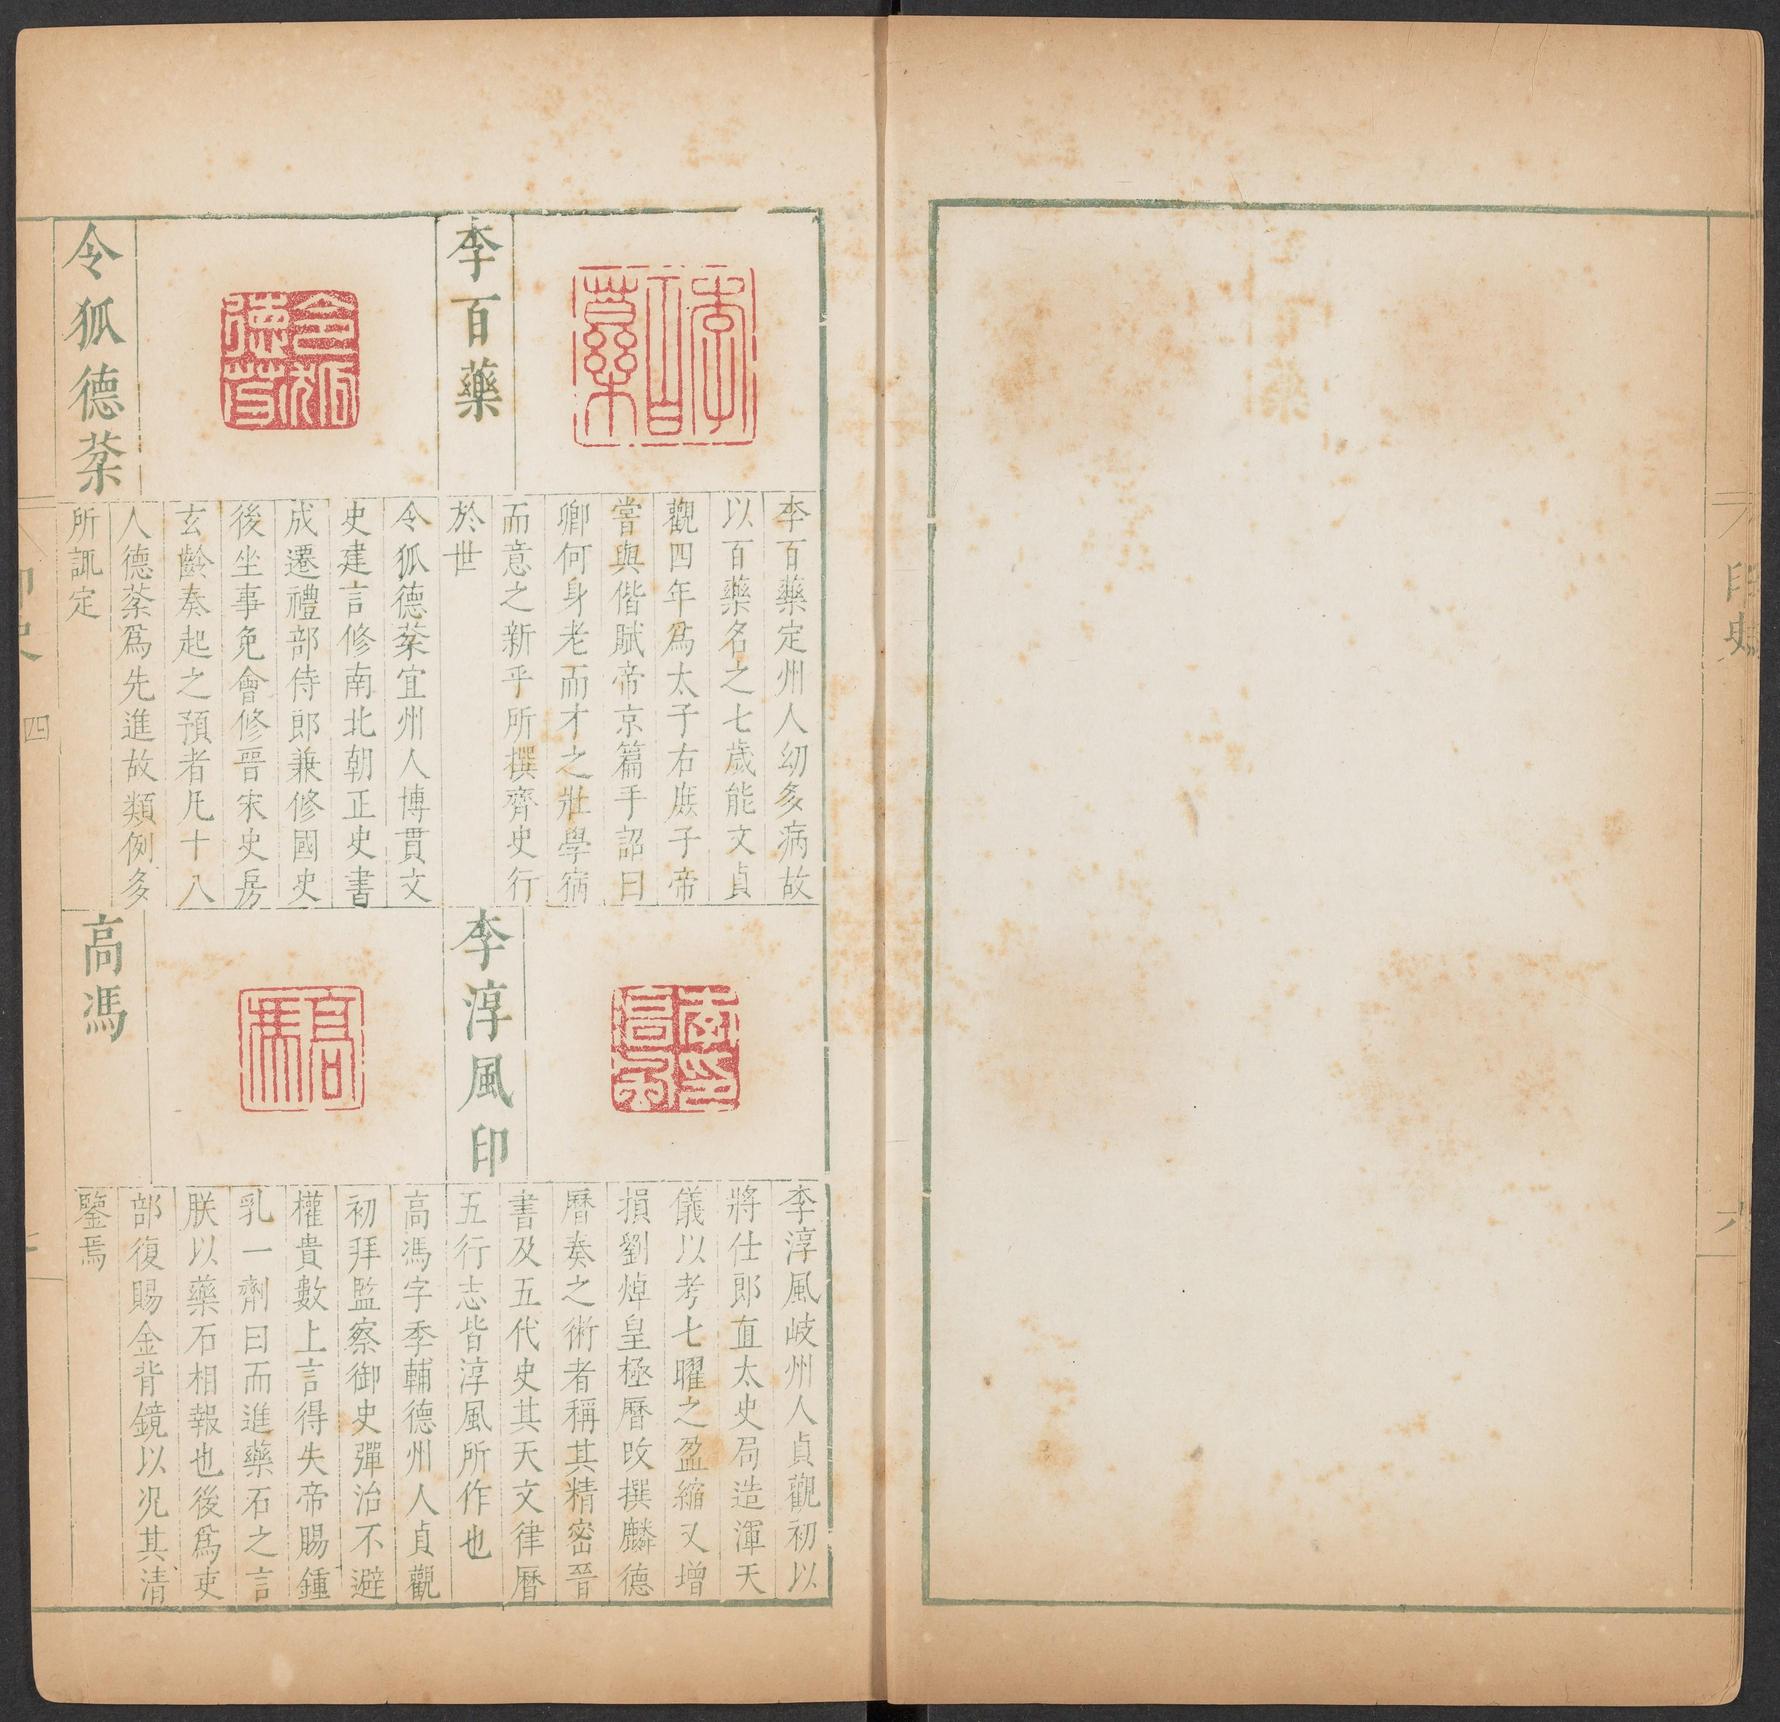 李百藥
李百藥
李百藥定州人幼多病故
以百藥名之七歲能文貞
觀四年爲太子右庶子帝
嘗與偕賦帝京篇手詔曰
卿何身老而才之壯學宿
而意之新乎所撰齊史行
於世
令狐德棻
令狐德棻
令狐德棻宜州人博貫文
史建言修南北朝正史書
成遷禮部侍郎兼修國史
後坐事免會修晉宋史房
玄齡奏起之預者凡十八
人德棻爲先進故類例多
所諏定
李淳風印
李淳風印
李淳風岐州人貞觀初以
將仕郎直太史局造渾天
儀以考七曜之盈縮又增
損劉焯皇極曆改撰麟德
曆奏之術者稱其精密晉
書及五代史其天文律曆
五行志皆淳風所作也
高馮
高馮
高馮字季輔德州人貞觀
初拜監察御史彈治不避
權貴數上言得失帝賜鍾
乳一劑曰而進藥石之言
朕以藥石相報也後爲吏
部復賜金背鏡以况其清
鑒焉
印史
四